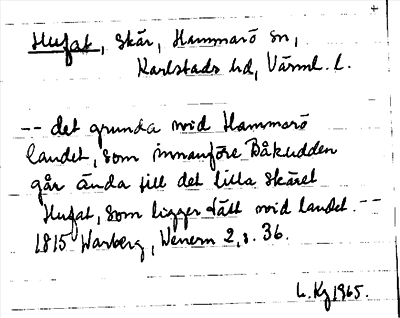 Hufat, skär, Hammarö sn,
Karlstads hd, Värml. l.
-- det grunda wid Hammarö
landet, som innanföre Båkudden
går ända till det lilla skäret
Hufat, som ligger tätt wid landet. --
1815 Warberg, Wenern 2, s. 36.
L. Kg 1965.